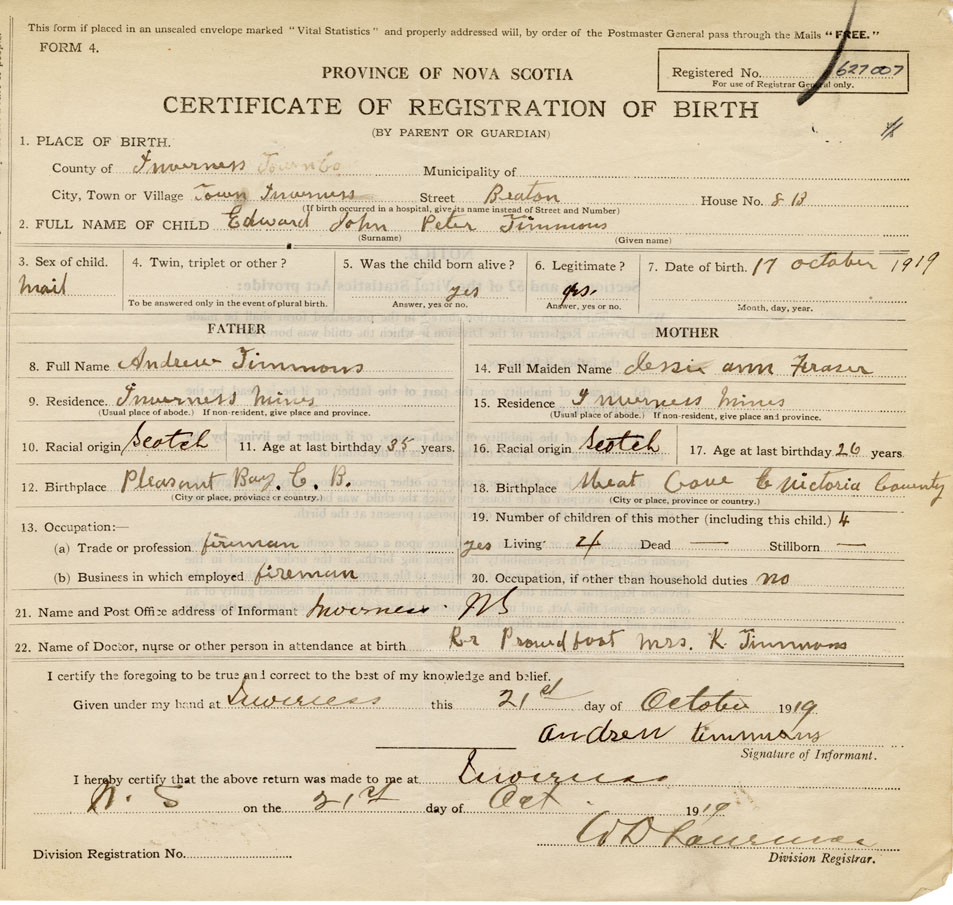 This form if placed in an unsealed envelope marked "Vital Statistics" and properly addressed will, by order of the Postmaster General pass through the Mails "FREE."
FORM 4.
Registered No. 627007
For use of Registrar General only.
PROVINCE OF NOVA SCOTIA
CERTIFICATE OF REGISTRATION OF BIRTH
(BY PARENT OR GUARDIAN)
1. PLACE OF BIRTH.
County of Inverness Municipality of
City, Town or Village Town Inverness Street Beaton House No. 8 B
(If birth occurred in a hospital, give its name instead of Street and Number)
2. FULL NAME OF CHILD Edward John Peter Timmons
(Surname) (Given name)
3. Sex of child. mail
4. Twin, triplet or other?
To be answered only in the event of plural birth.
5. Was the child born alive? yes
Answer, yes or no.
6. Legitimate? yes.
Answer, yes or no.
7. Date of birth. 17 october 1919
Month, day, year.
FATHER
8. Full Name Andrew Timmons
9. Residence. Inverness mines
(Usual place of abode.) If non-resident, give place and province.
10. Racial origin Scotch 11. Age at last birthday 35 years.
12. Birthplace Pleasant Bay. C. B.
(City or place, province or country.)
13. Occupation:—
(a) Trade or profession fireman
(b) Business in which employed fireman
MOTHER
14. Full Maiden Name Jessie ann Fraser
15. Residence Inverness mines
(Usual place of abode.) If non-resident, give place and province.
16. Racial origin Scotch 17. Age at last birthday 26 years.
18. Birthplace Meat Cove Victoria County
(City or place, province or country.)
19. Number of children of this mother (including this child.) 4
yes Living 4 Dead — Stillborn —
20. Occupation, if other than household duties no
21. Name and Post Office address of Informant Inverness. NS
22. Name of Doctor, nurse or other person in attendance at birth Proudfoot Mrs. K. Timmons
I certify the foregoing to be true and correct to the best of my knowledge and belief.
Given under my hand at Inverness this 21st day of October 1919
andrew timmons
Signature of Informant.
I hereby certify that the above return was made to me at Inverness
N. S on the 21st day of Oct. 1919
Division Registration No.
Division Registrar.